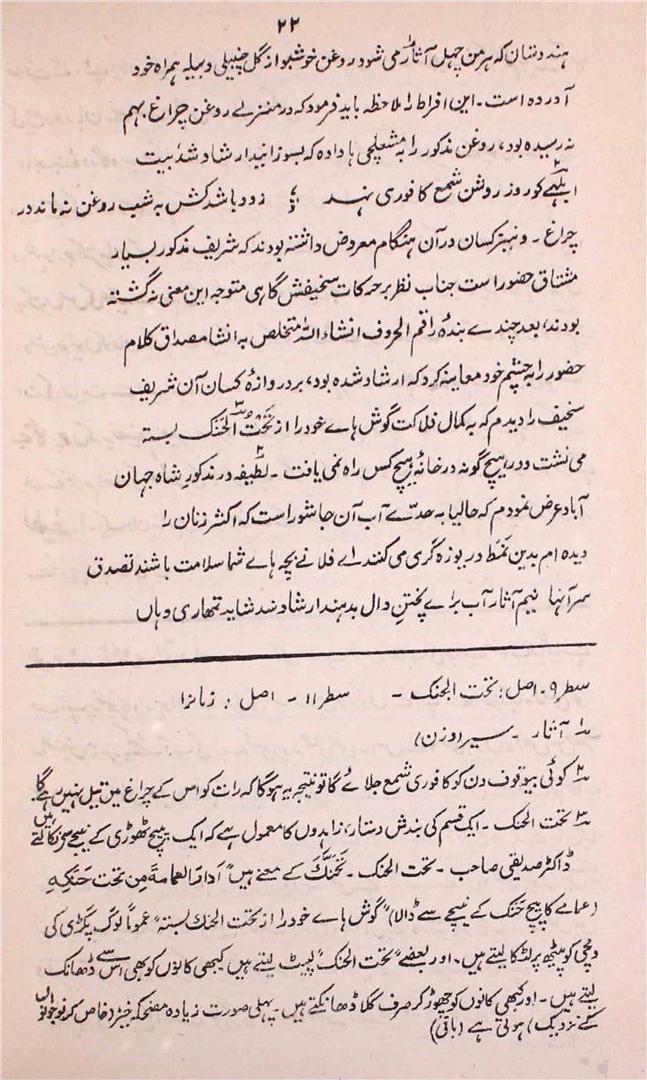 ۲۲
ہندوستان کہ ہر من چہل آثارؔ می شود روغن خوشبو از گل چنبیلی وبیلہ ہمراہ خود
آوردہ است۔ این افراط را ملاحظہ باید فرمود کہ در منزلے روغن چراغ بہم
نہ رسیدہ بود، روغن مذکور را بہ مشعلچی ہا دادہ کہ بسوزانید ارشاد شد بیت
ابلہے کو روز روشن شمع کافوری نہد ؛ زود باشد کش بہ شب روغن نہ ماند در
چراغ۔ ونیز کسان در آن ہنگام معروض داشتہ بودند کہ شریف مذکور بسیار
مشتاق حضور است جناب نظر بر حرکات سخیفش گاہی متوجہ این معنی نہ گشتہ
بودند، بعد چندے بندہ راقم الحروف انشاء اللہ متخلص بہ انشا مصداق کلام
حضور را بہ چشم خود معاینہ کرد کہ ارشاد شدہ بود، بر دروازۂ کسان آن شریف
سخیف را دیدم کہ بہ کمال فلاکت گوش ہاے خود را از تَحْتُ الحَنَک بستہ
می نشست و در ہیچ گونہ در خانۂ ہیچ کس راہ نمی یافت۔ لطیفہ در مذکور شاہ جہان
آباد عرض نمودم کہ حالیا بہ حدّے آب آن جا شور است کہ اکثر زنان را
دیدہ ام بدین نَمَط دریوزہ گری می کنند اے فلانے بچہ ہاے شما سلامت باشند تصدق
سر آنہا نیم آثار آب براے پختنِ دال بدہند ارشاد شد شاید تمھاری وہاں
سطر ۹۔ اصل: تخت الجنک ۔ سطر ۱۱ ۔ اصل: زنانرا
۱؎ آثار ۔ سیر (وزن)
۲؎ کوئی بیوقوف دن کو کافوری شمع جلائے گا تو نتیجہ یہ ہوگا کہ رات کو اس کے چراغ میں تیل نہیں رہے گا۔
۳؎ تحت الحنک ۔ ایک قسم کی بندش دستار، زاہدوں کا معمول ہے کہ ایک پیچ ٹھوڑی کے نیچے سے نکالتے ہیں
ڈاکٹر صدیقی صاحب ۔ تحت الحنک ۔ تَحَنَّکَ کے معنے ہیں "اَدَارَ العمامةَ مِن تحت حَنَکِہِ
(عمامے کا پیچ حنک کے نیچے سے ڈالا) "گوش ہاے خود را از تحت الحنک بستہ" عموماً لوگ پگڑی کی
دمچی کو پیٹھ پر لٹکا لیتے ہیں۔ اور بعضے "تحت الحنک" لپیٹ لیتے ہیں کبھی کانوں کو بھی اس سے ڈھانک
لیتے ہیں۔ اور کبھی کانوں کو چھوڑ کر صرف گلا ڈھانکتے ہیں۔ پہلی صورت زیادہ مضحکہ خیز (خاص کر نوجوانوں
کے نزدیک) ہوتی ہے (باقی)